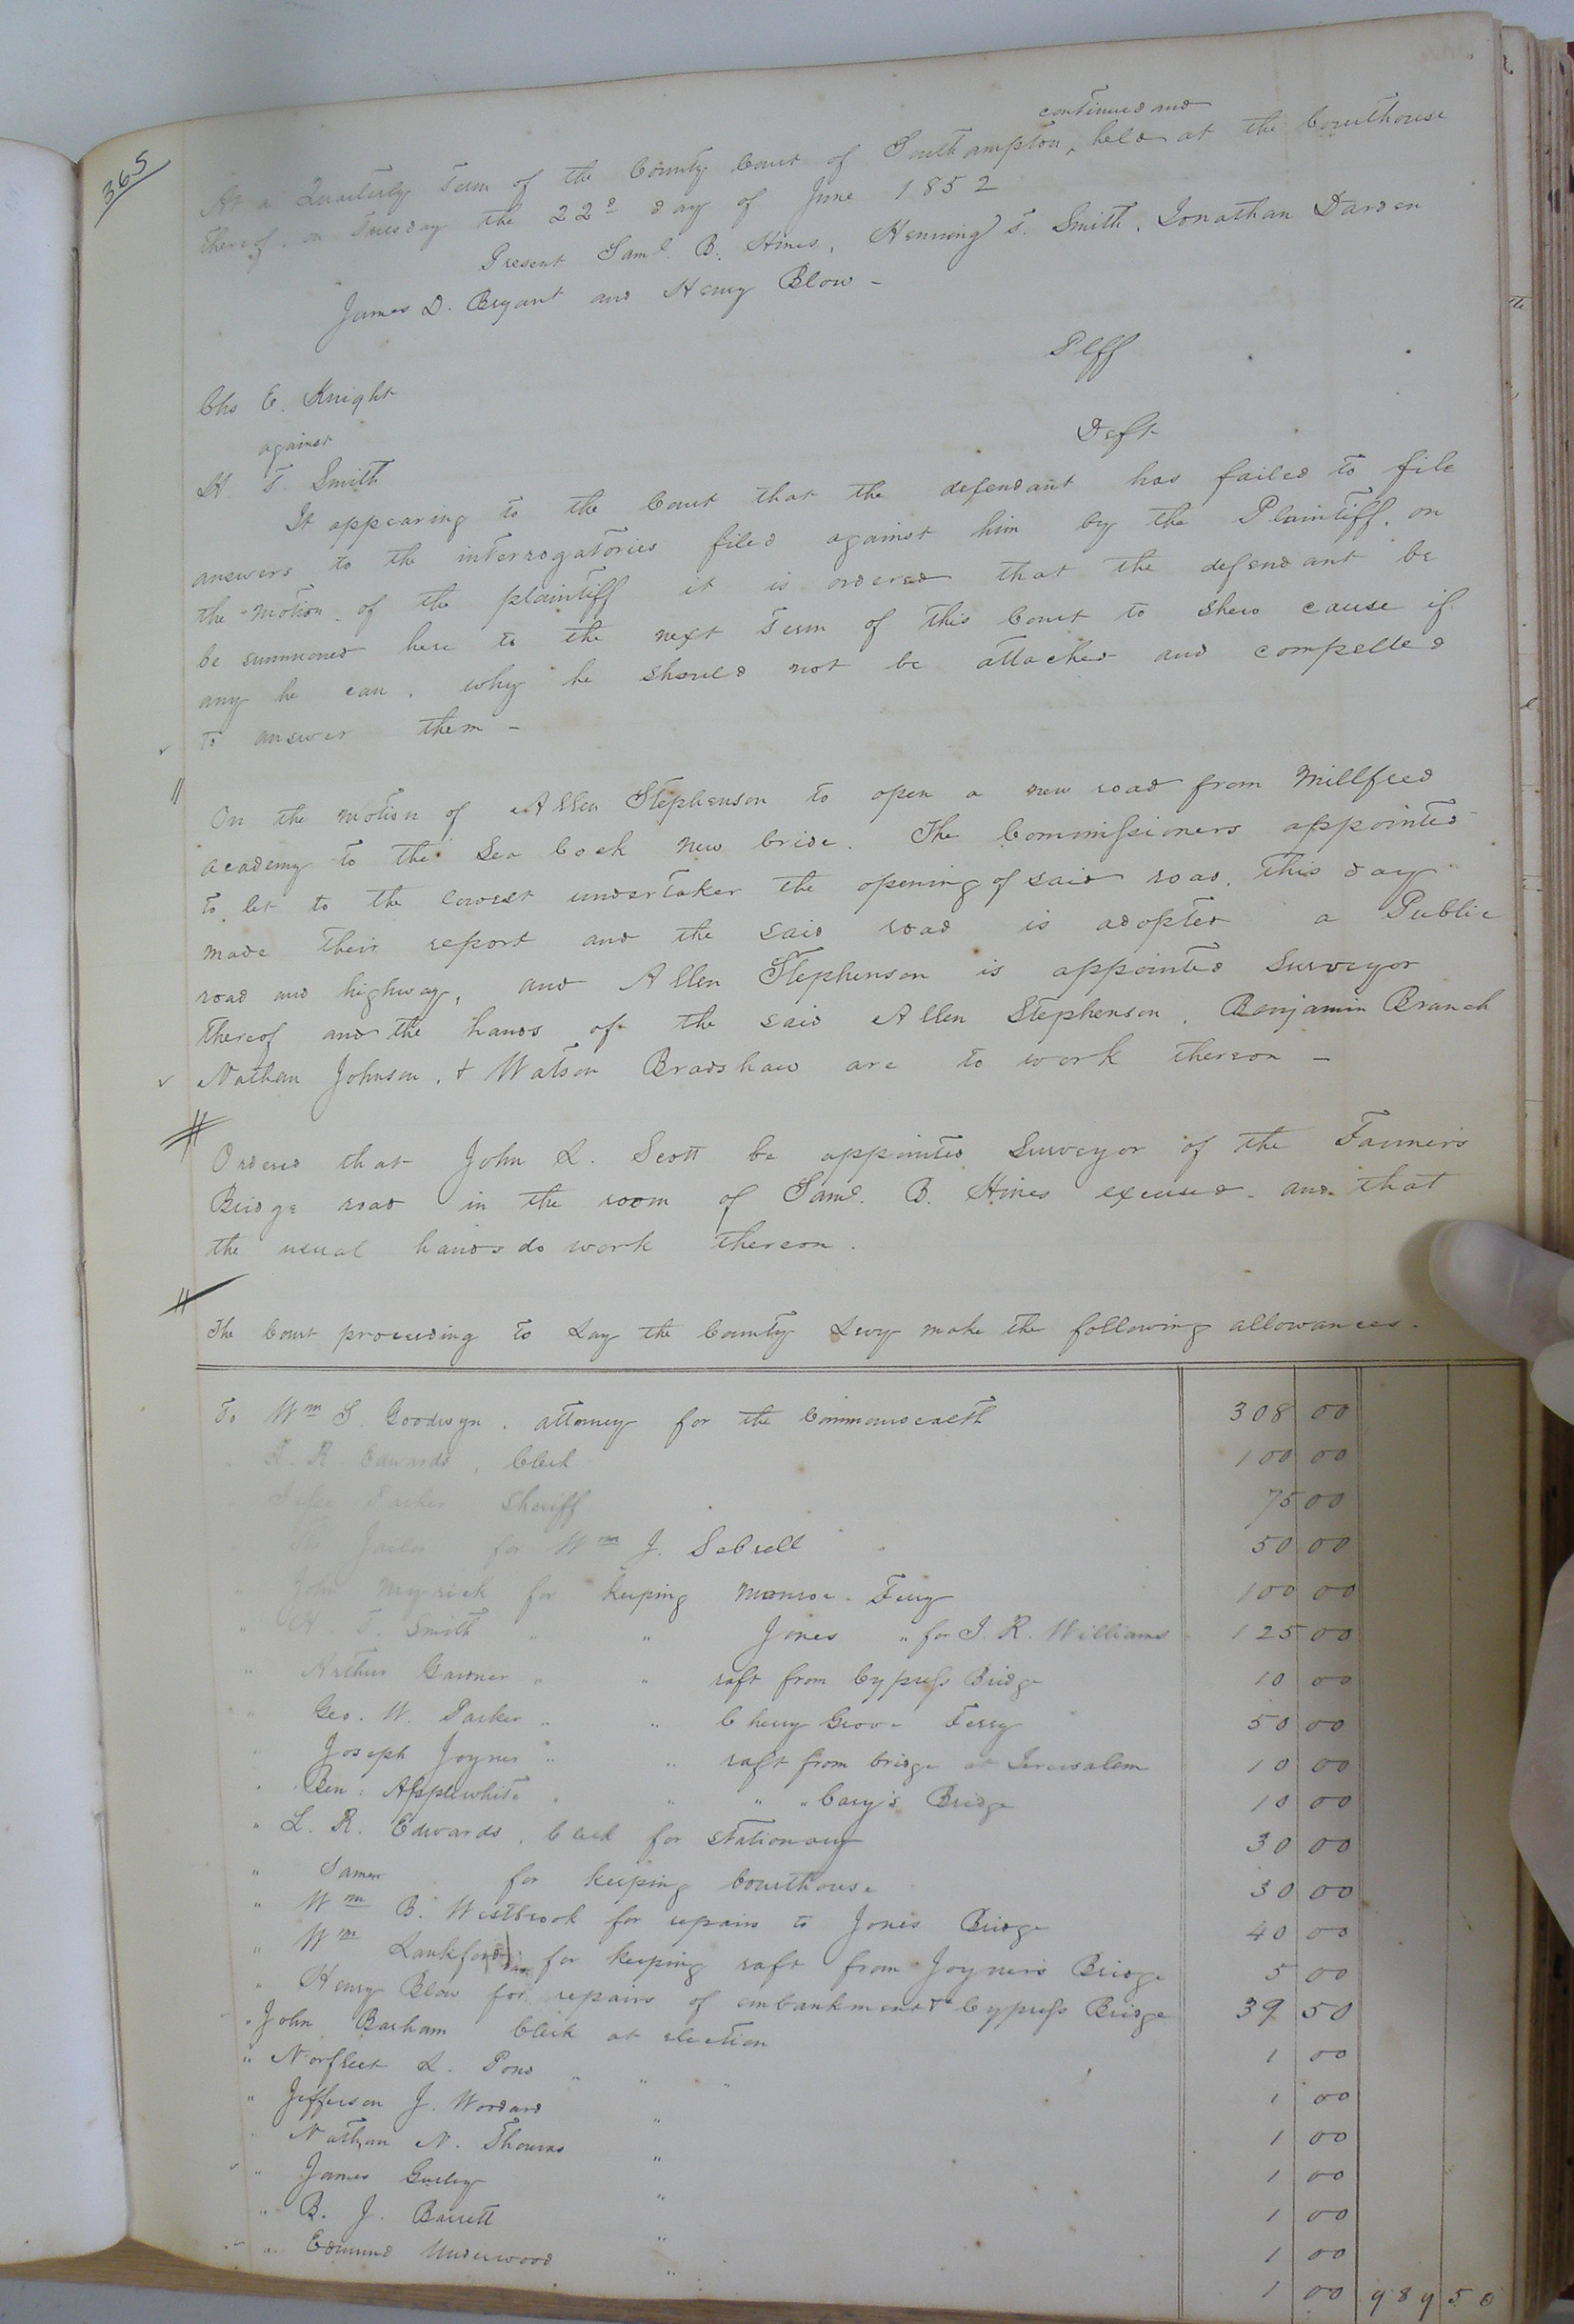 365
continued and
At a Quarterly Term of the County Court of Southampton, held at the Courthouse
thereof on Tuesday the 22d day of June 1852
Present Saml. B. Hines, Henning T. Smith, Jonathan Darden
James D. Bryant and Henry Blow -
Plff
Chs E. Knight
against
Deft
H. T. Smith
It appearing to the Court that the defendant has failed to file
answers to the interrogatories filed against him by the Plaintiff, on
the motion of the plaintiff it is ordered that the defendant be
be summoned here to the next Term of this Court to shew cause if
any he can, why he should not be attached and compelled
to answer them -
On the motion of Allen Stephenson to open a new road from Millfield
academy to the Sea Cock new bride. The Commissioners appointed
to let to the lowest undertaker the opening of said road, this day
made their report and the said road is adopted a Public
road and highway, and Allen Stephenson is appointed Surveyor
thereof and the hands of the said Allen Stephenson, Benjamin Branch
Nathan Johnson, & Watson Bradshaw are to work thereon -
Ordered that John L. Scott be appointed Surveyor of the Farmer's
Bridge road in the room of Saml. B. Hines excused and that
the usual hands do work thereon.
The Court proceeding to Lay the County Levy make the following allowances.
To Wm S. Goodwyn, attorney for the Commonwealth 308 00
" L. R. Edwards, Clerk 100 00
" Jesse Parker Sheriff 75 00
" The Jailor for Wm J. Sebrell 50 00
" John Myrick for keeping Monroe Ferry 100 00
" H. T. Smith " " Jones " for J. R. Williams 125 00
" Arthur Gardner " " raft from Cypress Bridge 10 00
" Geo. W. Parker " " Cherry Grove Ferry 50 00
" Joseph Joyner " " raft from bridge at Jerusalem 10 00
" Ben: Applewhite " " " " Cary's Bridge 10 00
" L. R. Edwards, Clerk for Stationary 30 00
" Same for keeping Courthouse 30 00
" Wm B. Westbrook for repairs to Jones Bridge 40 00
" Wm Lankford for keeping raft from Joyner's Bridge 5 00
" Henry Blow for repairs of embankment Cypress Bridge 39 50
" John Barham Clerk at election 1 00
" Norfleet L. Pond " " " 1 00
" Jefferson J. Woodard " 1 00
" Nathan N. Thomas " 1 00
" James Gurley " 1 00
" B. J. Barrett " 1 00
" Edmund Underwood " 1 00 989 50